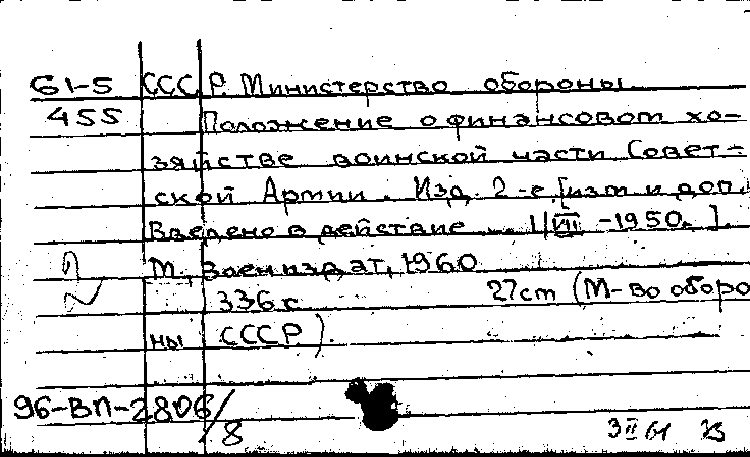 61-5 СССР. Министерство обороны
455 Положение о финансовом хо-
зяйстве воинской части Совет-
ской Армии. Изд. 2-е, [изм. и доп.
Введено в действие ... 1/VIII -1950. ].
М., Воениздат, 1960
336 с. 27cm (М-во оборо
ны СССР).
96-ВП-2806/8
3 II 61